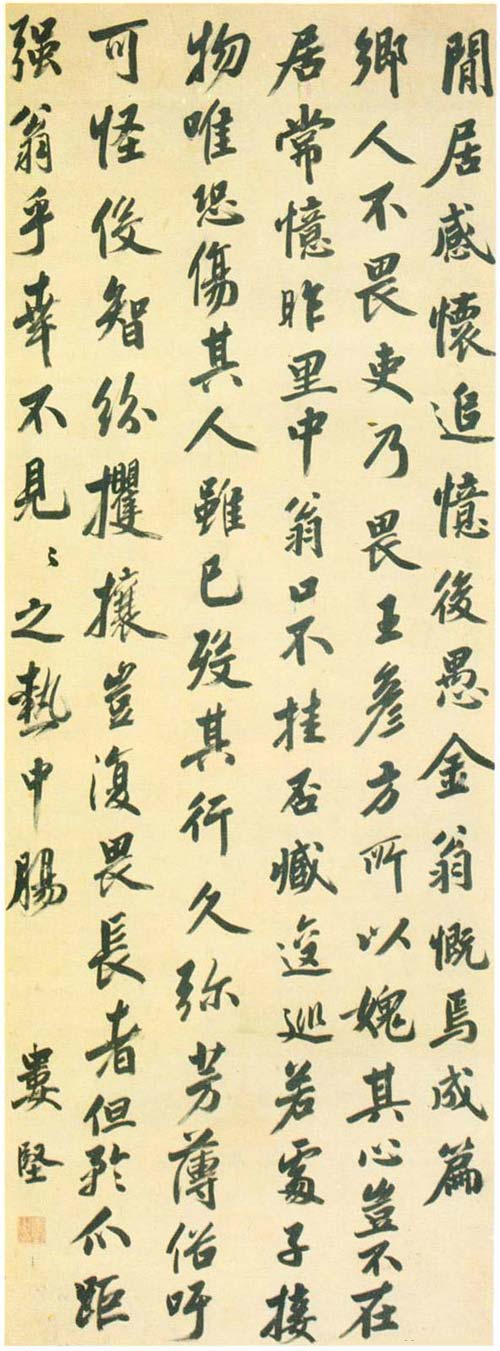 閒居感懷追憶後愚金翁慨焉成篇
鄉人不畏吏乃畏王彥方所以媿其心豈不在
居常憶昨里中翁口不挂否臧逡巡若處子接
物唯恐傷其人雖已歿其行久弥芳薄俗吁
可怪役智紛攫攘豈復畏長者但矜爪距
强翁乎幸不見〻之熱中腸 婁堅